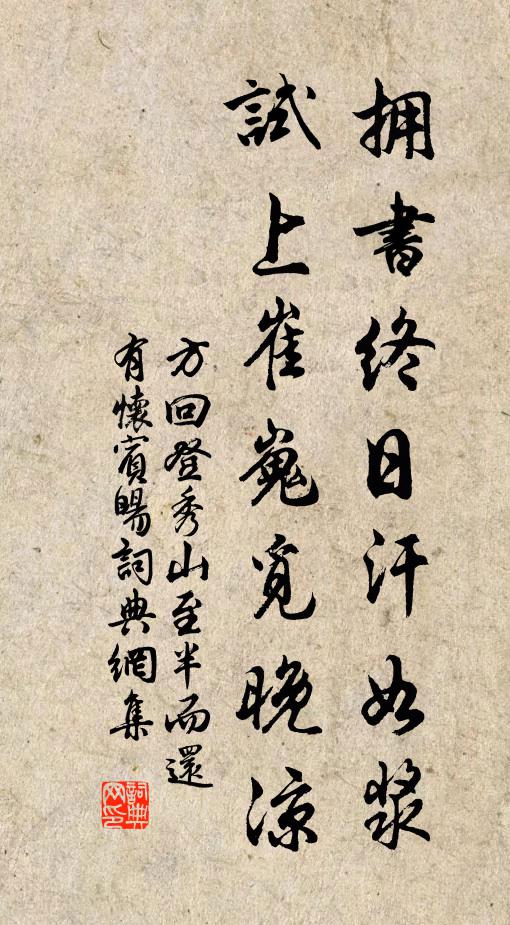 拥書終日汗如漿
試上崔嵬覓晚涼
方回登秀山至半而還
有懷賓暘詞典網集
詞典
网印